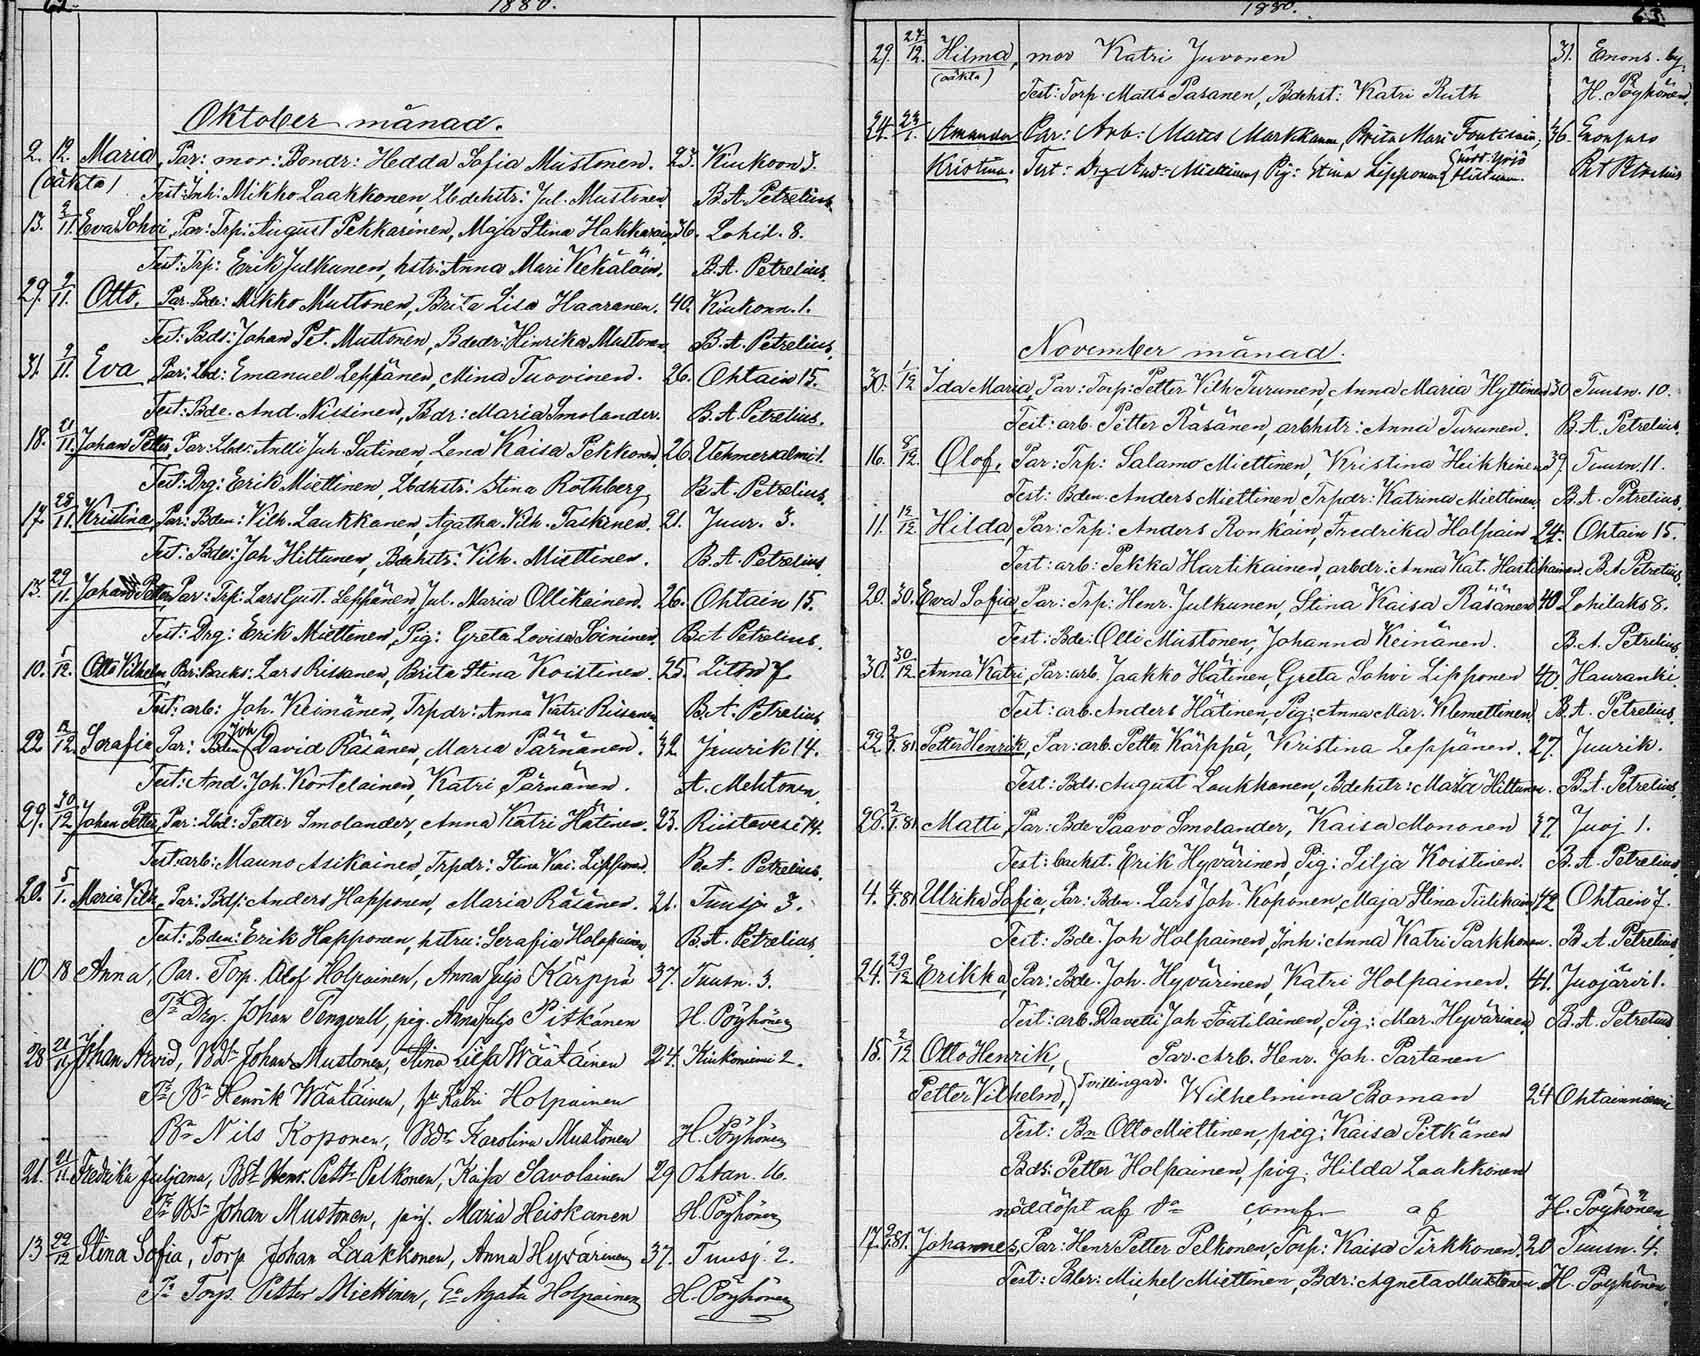 62. 1880.
Oktober månad.
2. 12. Maria, Par: mor: Bondr: Hedda Sofia Mustonen. 23. Kiukoon 3.
(oäkta) Test: Inh: Mikko Laakkonen, Lbdehstr: Jul. Mustonen B. A. Petrelius.
13. 2/11. Eva Sohvi, Par: Trp: August Pekkarinen, Maja Stina Hakkarain, 36. Lohil. 8.
Test: Trp: Erik Julkunen, hstr: Anna Mari Kekäläin. B. A. Petrelius.
29. 9/11. Otto, Par: Bde: Mikko Mustonen, Brita Lisa Haaranen. 40. Kiukonn. 1.
Test: Bds: Johan Pet. Mustonen, Bdedr: Hinrika Mustonen B. A. Petrelius.
31. 9/11. Eva Par: Lbd: Emanuel Leppänen, Mina Tuovinen. 26. Ohtain 15.
Test: Bde. And. Nissinen, Bdr: Maria Smolander. B. A. Petrelius.
18. 21/11. Johan Petter, Par: Lbds: Antti Joh. Sutinen Lena Kaisa Pekkonen, 26. Vehmersalmi 1.
Test: Drg: Erik Miettinen, Lbdhstr: Stina Rothberg B. A. Petrelius.
17. 28/11. Kristina, Par: Bden: Vilh. Laukkanen, Agatha Vilh. Taskinen. 21. Juur. 3.
Test: Bde: Joh Hiltunen, Bdehstr: Vilh. Miettinen. B. A. Petrelius.
13. 29/11. Johan Petter, Par: Trp: Lars Gust. Leppänen, Jul. Maria Ollikainen. 26. Ohtain 15.
Test: Drg: Erik Miettinen, Pig: Greta Lovisa Soininen. B. A. Petrelius.
10. 1/12. Otto Vilhelm Par: Backs: Lars Rissanen, Brita Stina Koistinen. 25.
Test: arb: Joh. Keinänen, Trpdr: Anna Katri Rissanen B. A. Petrelius.
22 12/12. Serafia, Par: Bden Joh David Räsänen, Maria Pärnänen. 32. Juurik 14.
Test: And. Joh. Kortelainen, Katri Pärnänen. A. Mehtonen.
29. 30/12 Johan Petter, Par: Lbd: Petter Smolander, Anna Katri Hätinen. 23. Riistavesi 14.
Test: arb: Mauno Asikainen, Trpdr: Stina Kai. Lipponen. B. A. Petrelius.
20. 5/1. Maria Vilh, Par: Bds: Anders Happonen, Maria Räsänen. 21. Tuusj. 3.
Test: Bden: Erik Happonen, hstru: Serafia Holopainen B. A. Petrelius.
10. 18 Anna, Par. Torp. Olof Holpainen, Anna Juljo Kärppä 37. Tuusn. 3.
Ts Drg. Johan Tengvall, pig. Anna Juljo Pitkänen H. Pöyhönen
28 21/11 Johan Arvid, Bds Johan Mustonen, Stina Liisa Väätäinen 24. Kiukoniemi 2.
Ts Bn Henrik Wäätäinen, hu Katri Holpainen
Bn Nils Koponen, Bdr Karolina Mustonen H. Pöyhönen
21. 21/11. Fredrika Juljana, Bds Henr. Pett. Pelkonen, Kaisa Savolainen 29 Ohtan. 16.
Ts Bds Johan Mustonen, pig. Maria Heiskanen H. Pöyhönen
13 22/12 Stina Sofia, Torp Johan Laakkonen, Anna Hyvärinen 37. Tuusj. 2.
Ts Torp. Petter Miettinen, Ea Agata Holpainen H. Pöyhönen
1880. 63.
29. 27/12. Hilma, mor Katri Juvonen 31. Enons. by.
(oäkta) Test: Torp. Matts Pasanen, Bdehst: Katri Ruth H. Pöyhönen.
24. 23/1. Amanda Par: Arb: Matts Markkanen, Brita Mari 36.
Kristina. Test: Drg And. Miettinen, Pig: Stina Lipponen
November månad.
30. 1/12 Ida Maria, Par: Torp: Petter Vilh Turunen, Anna Maria Hyttinen 30 Tuusn. 10.
Test: arb. Petter Räsänen, arbhstr: Anna Turunen. B. A. Petrelius.
16. 8/12. Olof, Par: Trp: Salamo Miettinen, Kristina Heikkinen 39. Tuusn. 11.
Test: Bden. Anders Miettinen, Trpdr: Katrina Miettinen. B. A. Petrelius.
11. 12/12 Hilda, Par: Trp: Anders Ronkain, Fredrika Holpain 24. Ohtain 15.
Test: arb: Pekka Hartikainen, arbdr: Anna Kat. Hartikainen. B. A. Petrelius.
20. 30. Eva Sofia, Par: Trp: Henr. Julkunen, Stina Kaisa Räsänen 40 Lohilaks 8.
Test: Bde: Olli Mustonen, Johanna Keinänen. B. A. Petrelius.
30. 30/12. Anna Katri, Par: arb. Jaakko Hätinen, Greta Sohvi Lipponen 40. Hauranki.
Test: arb. Anders Hätinen, Pig: Anna Mar. Klemettinen B. A. Petrelius.
22. 2/1.81 Petter Henrik, Par: arb. Petter Kärppä, Kristina Leppänen. 27. Juurik.
Test: Bds. August Laukkanen, Bdehstr: Maria Hiltunen. B. A. Petrelius.
28. 2/1.81 Matti, Par: Bde Paavo Smolander, Kaisa Mononen 37. Juoj 1.
Test: backst. Erik Hyvärinen, Pig: Silja Koistinen. B. A. Petrelius.
4. 4/1.81 Ulrika Sofia, Par: Bden. Lars Joh. Koponen, Maja Stina Tiilikain 42 Ohtain 7.
Test: Bde. Joh Holpainen, Inh: Anna Katri Parkkonen. B. A. Petrelius.
24. 29/12 Erikka, Par: Bde. Joh. Hyvärinen, Katri Holpainen. 41. Juojärvi 1.
Test: arb. Davetti Joh Toutilainen, Pig: Mar. Hyvärinen, B. A. Petrelius.
15. 2/12 Otto Henrik, Par. Arb. Henr. Joh. Partanen
Petter Vilhelm, Tvillingar. Wilhelmina Boman 24 Ohtainniemi
Test: Bn Otto Miettinen, pig: Kaisa Pitkänen
Bds: Petter Holpainen, pig. Hilda Laukkonen
nöddöpt af Dn comf. af H. Pöyhönen.
17. 9/1.81. Johannes, Par: Henr Petter Pelkonen, Torp: Kaisa Tirkkonen. 20 Tuusn. 4.
Test: Bder: Michel Miettinen, Bdr: Agneta Mustonen. H. Pöyhönen.